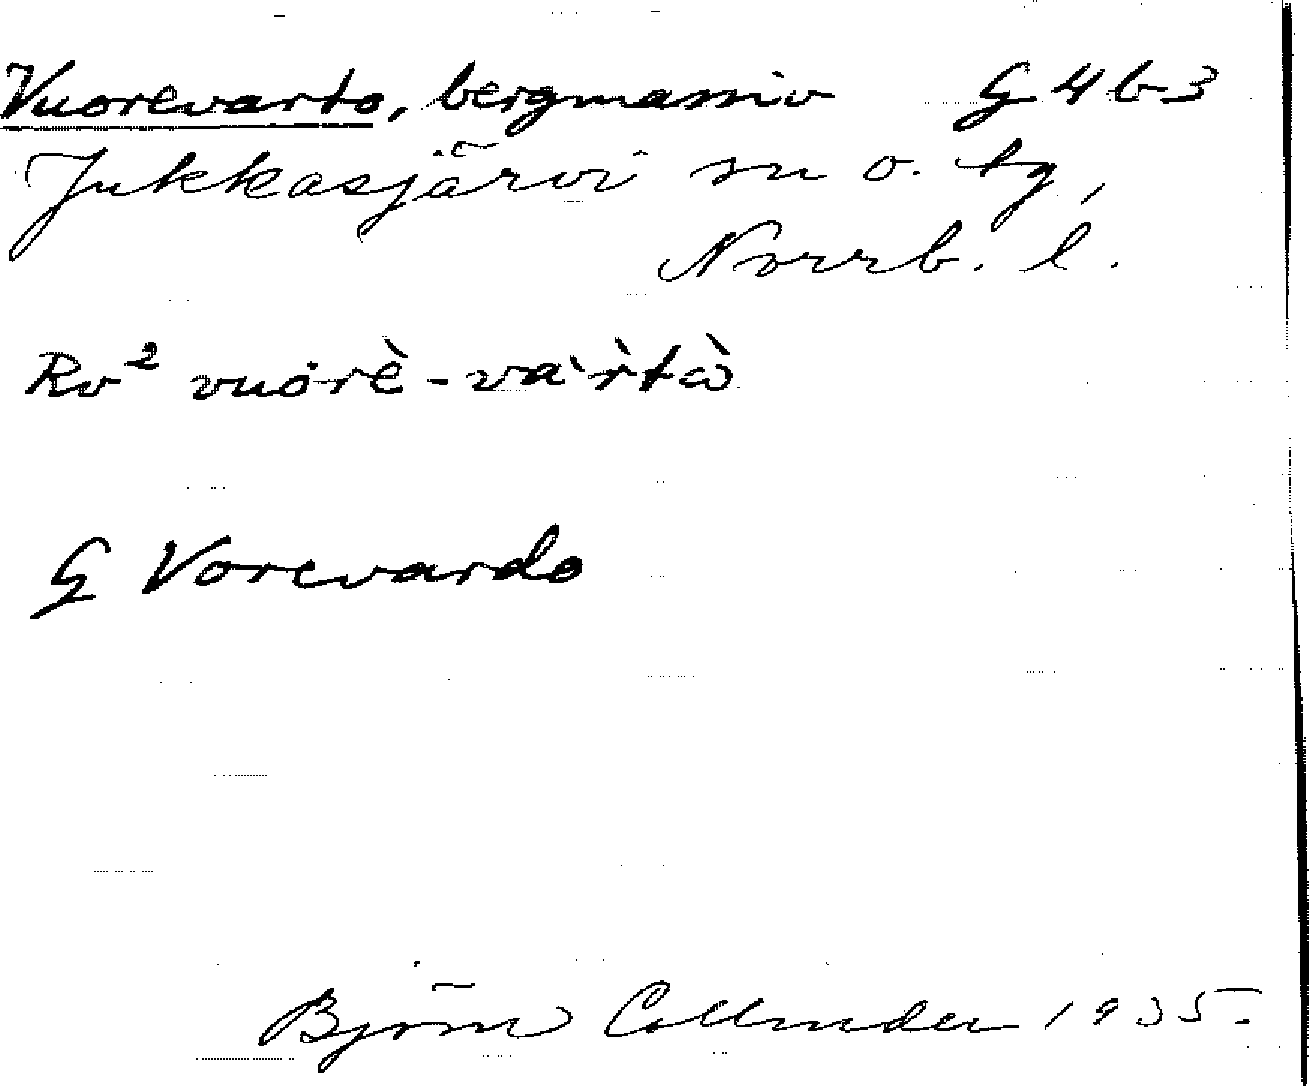 Vuorevarto, bergmassiv G 4 b 3
Jukkasjärvi sn o. tg,
Norrb. l.
Rv² vuorè-và'r̀tò
G Vorevardo
Björn Collinder 1935.